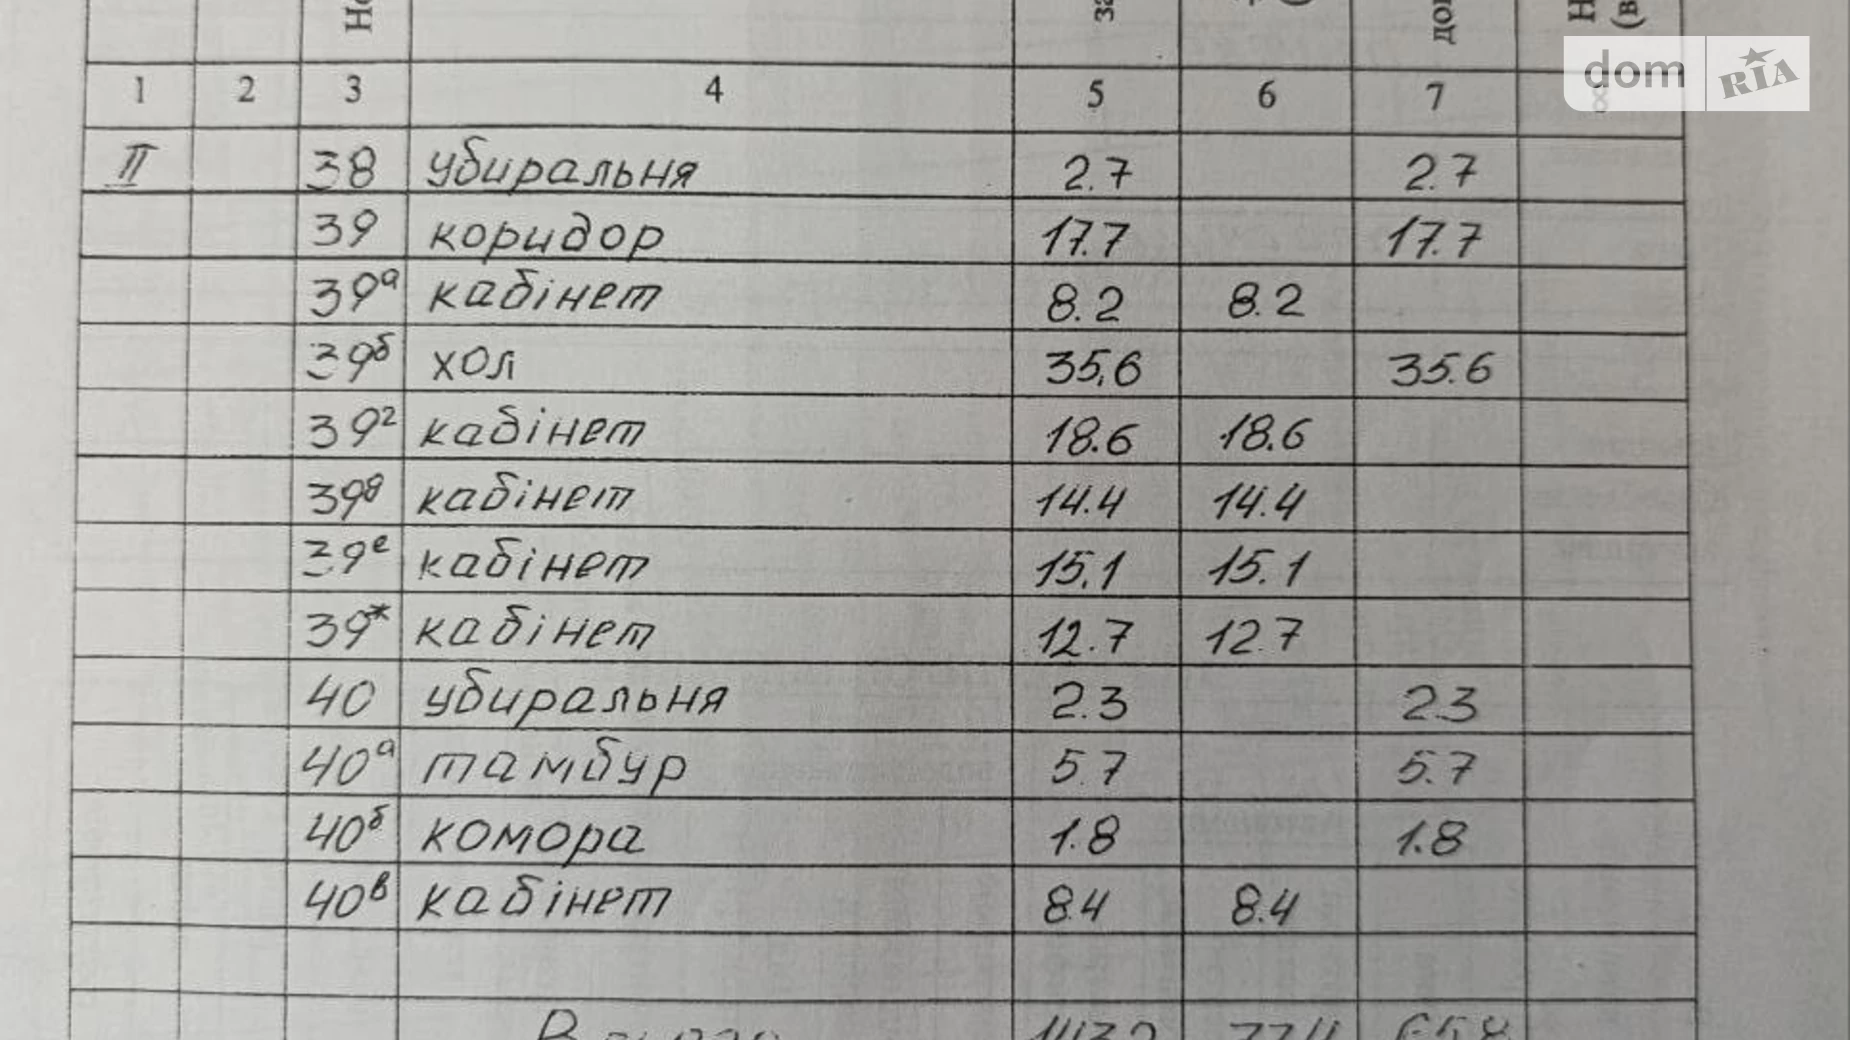 1 2 3 4 5 6 7 8
II 38 убиральня 2.7 2.7
39 коридор 17.7 17.7
39а кабінет 8.2 8.2
39б хол 35,6 35.6
39г кабінет 18.6 18.6
39д кабінет 14.4 14.4
39е кабінет 15.1 15.1
39ж кабінет 12.7 12.7
40 убиральня 2.3 2.3
40а тамбур 5.7 5.7
40б комора 1.8 1.8
40в кабінет 8.4 8.4
dom RIA